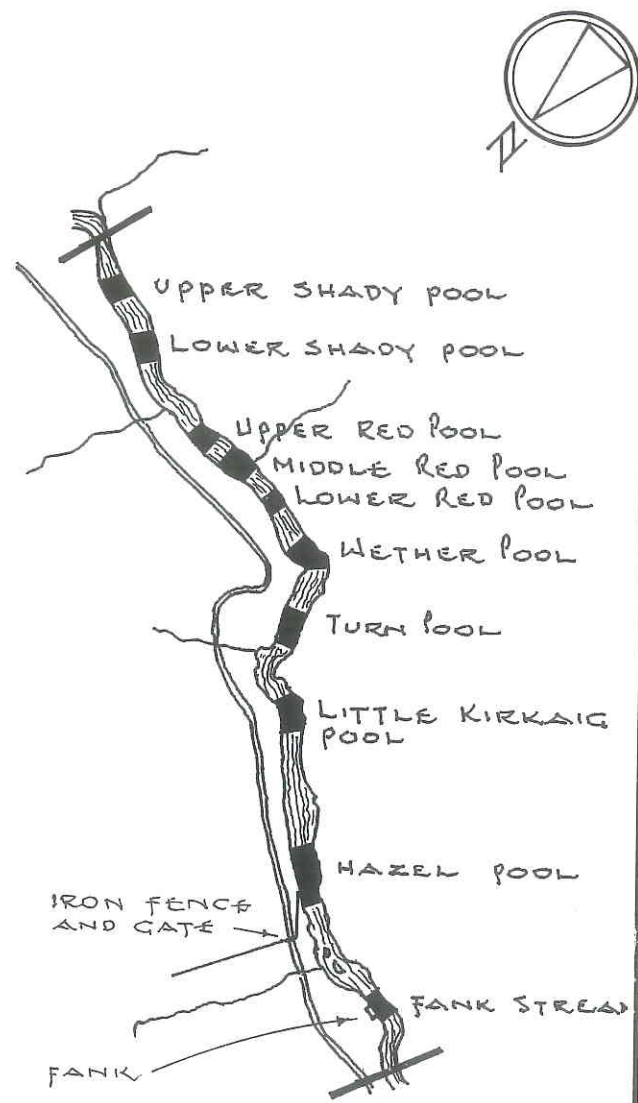 N
UPPER SHADY POOL
LOWER SHADY POOL
UPPER RED POOL
MIDDLE RED POOL
LOWER RED POOL
WETHER POOL
TURN POOL
LITTLE KIRKAIG
POOL
HAZEL POOL
IRON FENCE
AND GATE
FANK STREAM
FANK